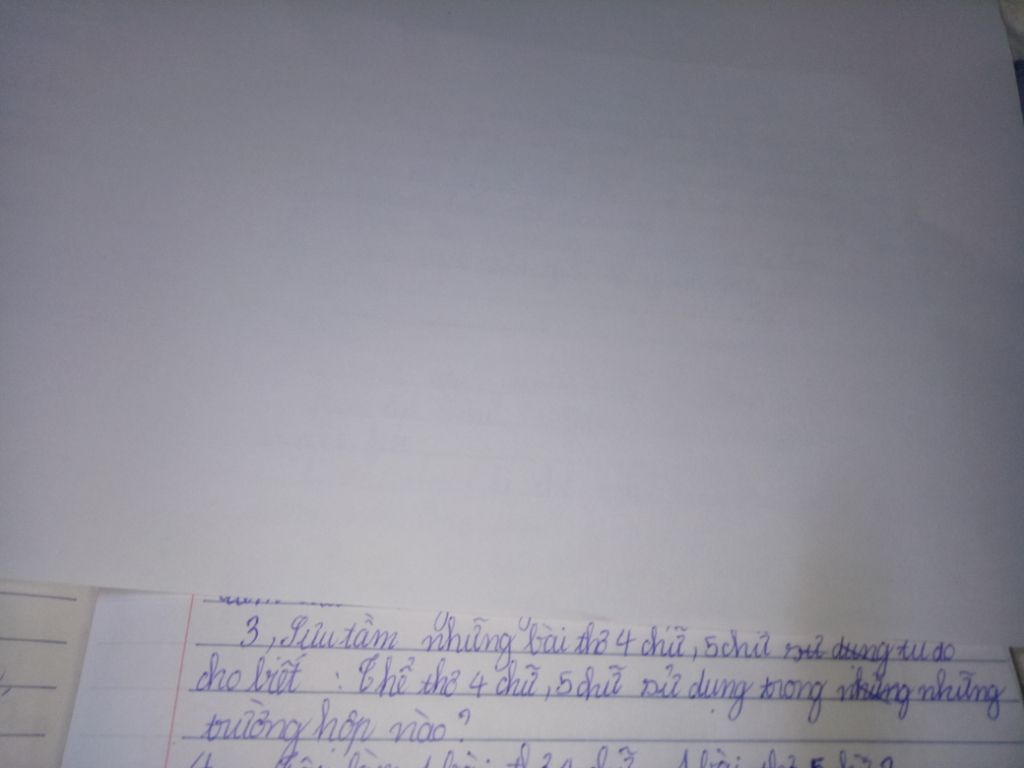 3, Sưu tầm những bài thơ 4 chữ, 5 chữ sử dụng tự do
cho biết : Thể thơ 4 chữ, 5 chữ sử dụng trong những những
trường hợp nào?